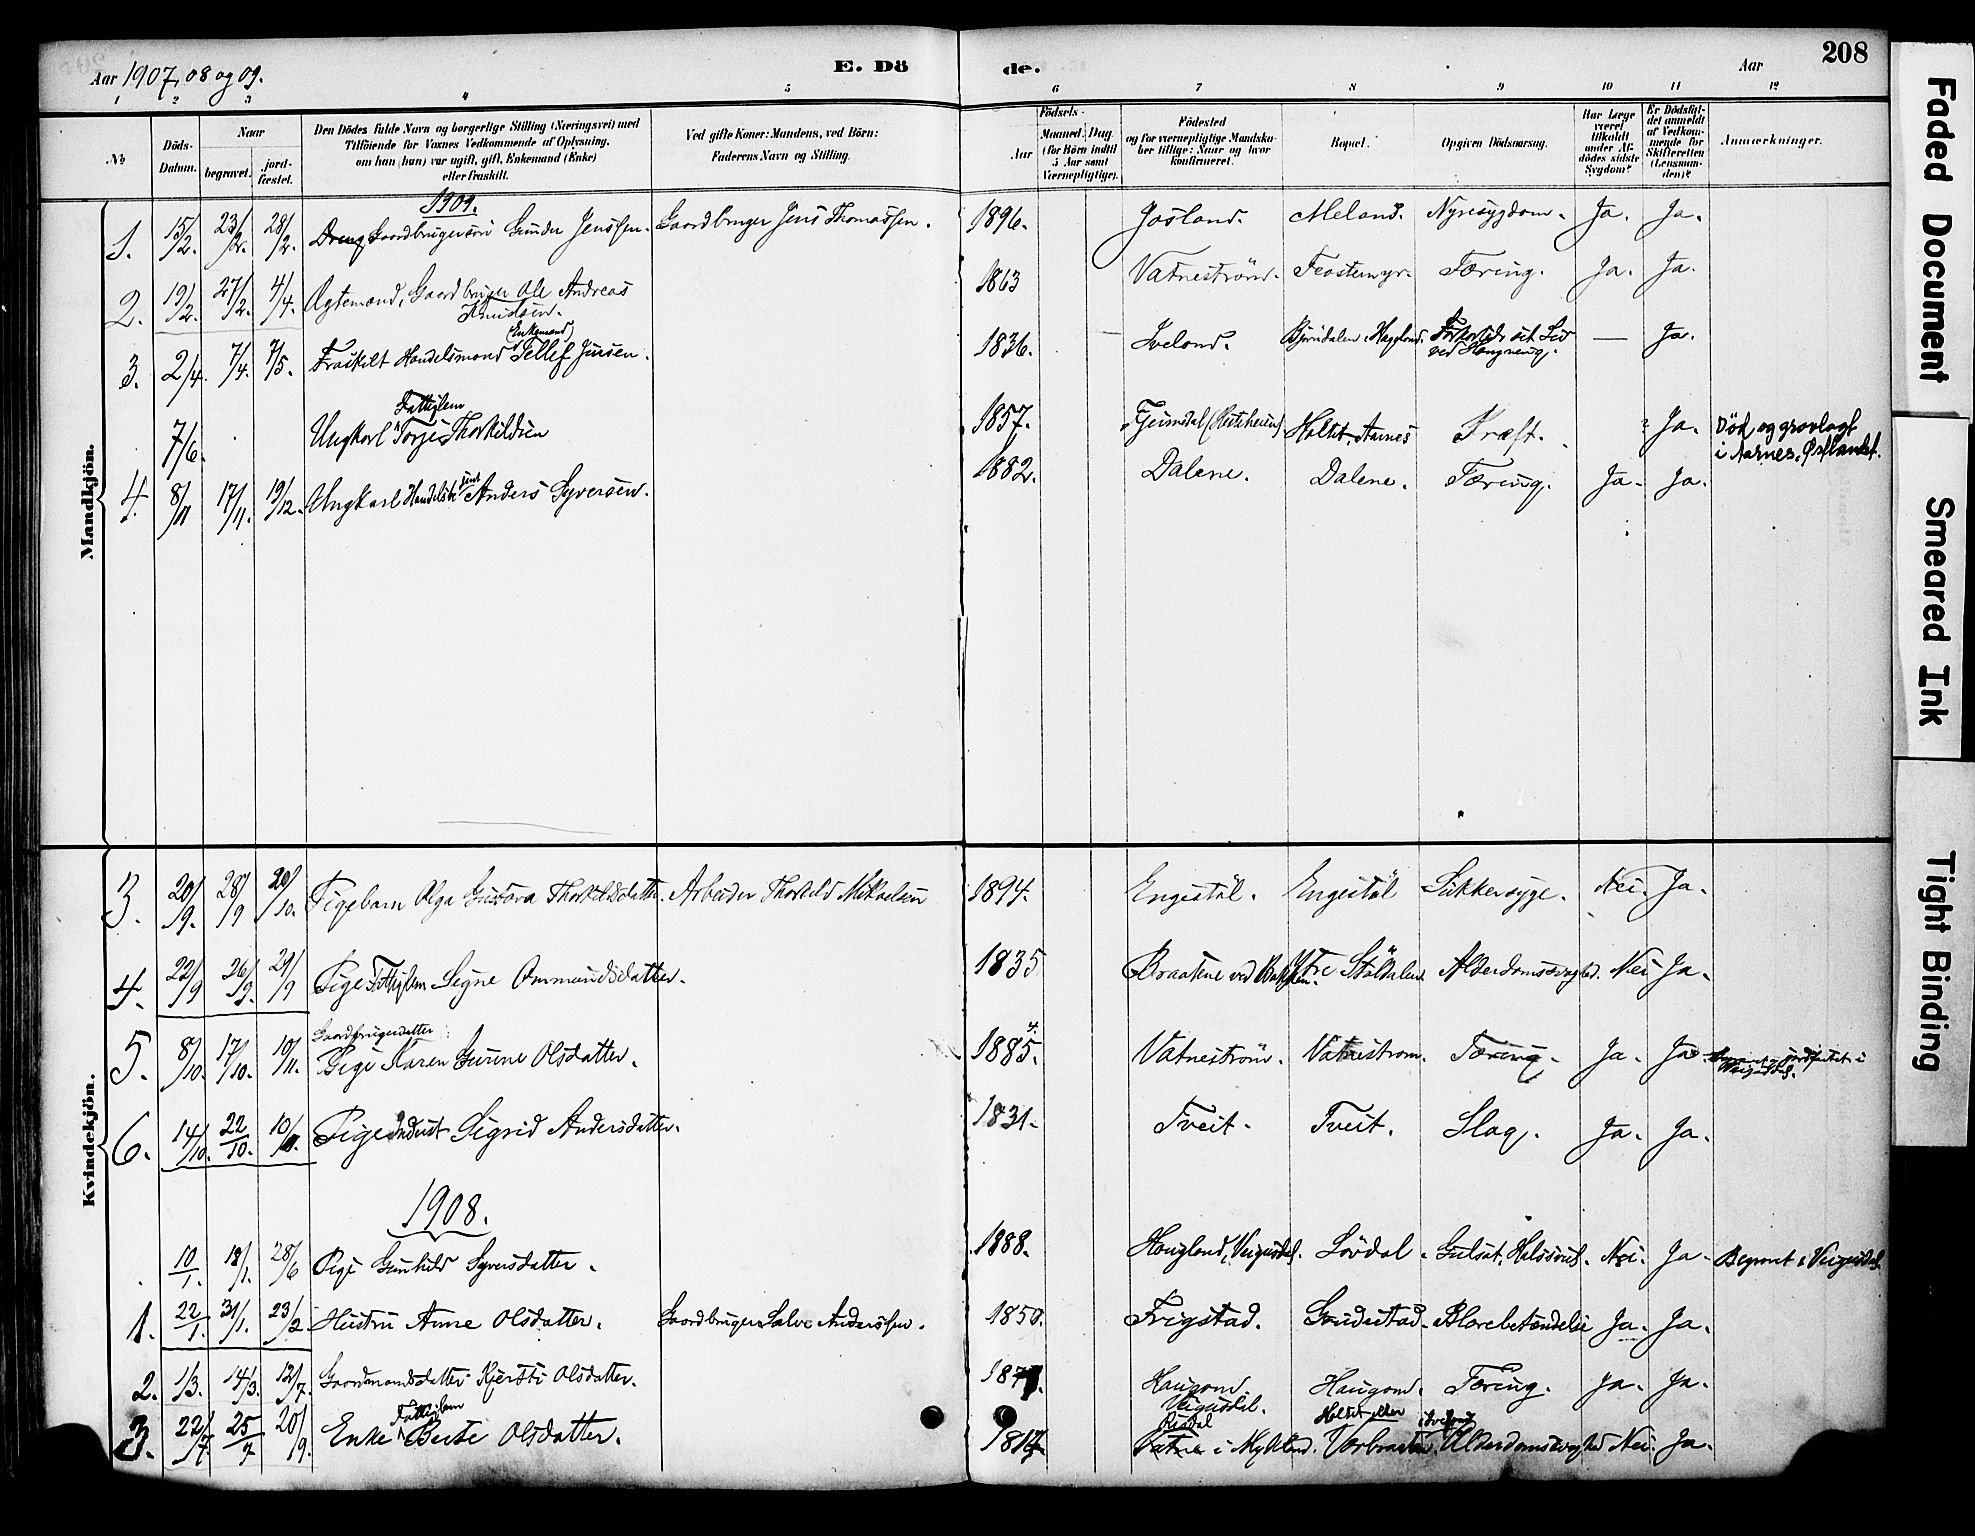 Aar 1907, 08 og 09.
E. Dö
de.
Aar
208
1 2 3 4 5 6 7 8 9 10 11 12
No
Döds-Datum.
Naar
begravet.
jord-fæstet.
Den Dödes fulde Navn og borgerlige Stilling (Næringsvei) med
Tilföiende for Voxnes Vedkommende af Oplysning,
om han (hun) var ugift, gift, Enkemand (Enke)
eller fraskilt.
Ved gifte Koner: Mandens, ved Börn:
Faderens Navn og Stilling.
Födsels-
Aar
Maaned. Dag.
(for Börn indtil
5 Aar samt
Værnepligtige).
Födested
og for værnepligtige Mandskaber tillige: Naar og hvor konfirmeret.
Bopæl.
Opgiven Dödsaarsag.
Har Læge været tilkaldt under Afdödes sidste Sygdom?
Er Dödsfaldet anmeldt af Vedkommende for Skifteretten (Lensmanden)?
Anmærkninger.
Mandkjön.
1909.
1. 15/2 23/2 28/2. Gaardbrugersön Gunder Jenssen. Gaardbruger Jens Thomassen. 1896. Josland. Meland. Nyresygdom. Ja. Ja.
2. 19/2. 27/2. 4/4. Ægtemand, Gaardbruger Ole Andreas
Knudsen. 1863 Vatneström. Tæring. Ja. Ja.
3. 2/4. 7/4. 7/5. Fraskilt Handelsmand (Enkemand) Tellef Jensen. 1836. Iveland. Bjørndalen, Hægeland. Forkortede sit Liv
ved Hængning. — Ja.
7/6. Ungkarl Fattiglem Torje Thorkildsen 1857. Holtet, Aarnes Kræft. Ja. Død og gravlagt
i Aarnes, Østlandet.
4. 8/11 17/11. 19/12. Ungkarl Anders Syversen. 1882. Dalene. Dalene. Tæring. Ja. Ja.
Kvindekjön.
3. 20/9. 28/9 20/10. Pigebarn Olga Gustava Thorkildsdatter. Arbeider Thorkild Mikaelsen 1894. Engestöl. Engestöl Sukkersyge. Nei. Ja.
4. 22/9 26/9. 29/9 Pige Fattiglem Signe Ommundsdatter. 1835 Braatene ved Ytre Alderdomssvaghed. Nei Ja.
5. 8/10. 17/10. 10/11. Gaardbrugerdatter
Pige Karen Gurine Olsdatter. 1885. Vatneström. Vatnestrøm. Tæring. Ja. Ja
6. 14/10. 22/10. 10/11. Pige Inderst Sigrid Andersdatter. 1831. Tveit. Tveit. Slag. Ja. Ja.
1908.
10/1. 18/1. 28/6 Pige Gunhild Syversdatter. 1888. Hougland, Veigusdal. Lövdal. Gulsot, Halssvul. Nei. Ja. Begravet i Veigusdal.
1. 22/1. 31/1. 23/2 Hustru Anne Olsdatter. Gaardbruger Salve Anderssen. 1850. Frigstad. Blærebetændelse Ja. Ja.
2. 1/3. 14/3. 12/7. Gaardmandsdatter Kjersti Olsdatter. Haugom.
Veigusdal. Haugom. Tæring. Ja. Ja.
3. 22/7. 25/7 20/9. Enke Fattiglem Berte Olsdatter. i Mykland. Alderdomssvaghed Nei. Ja.
Faded Document
Smeared Ink
Tight Binding